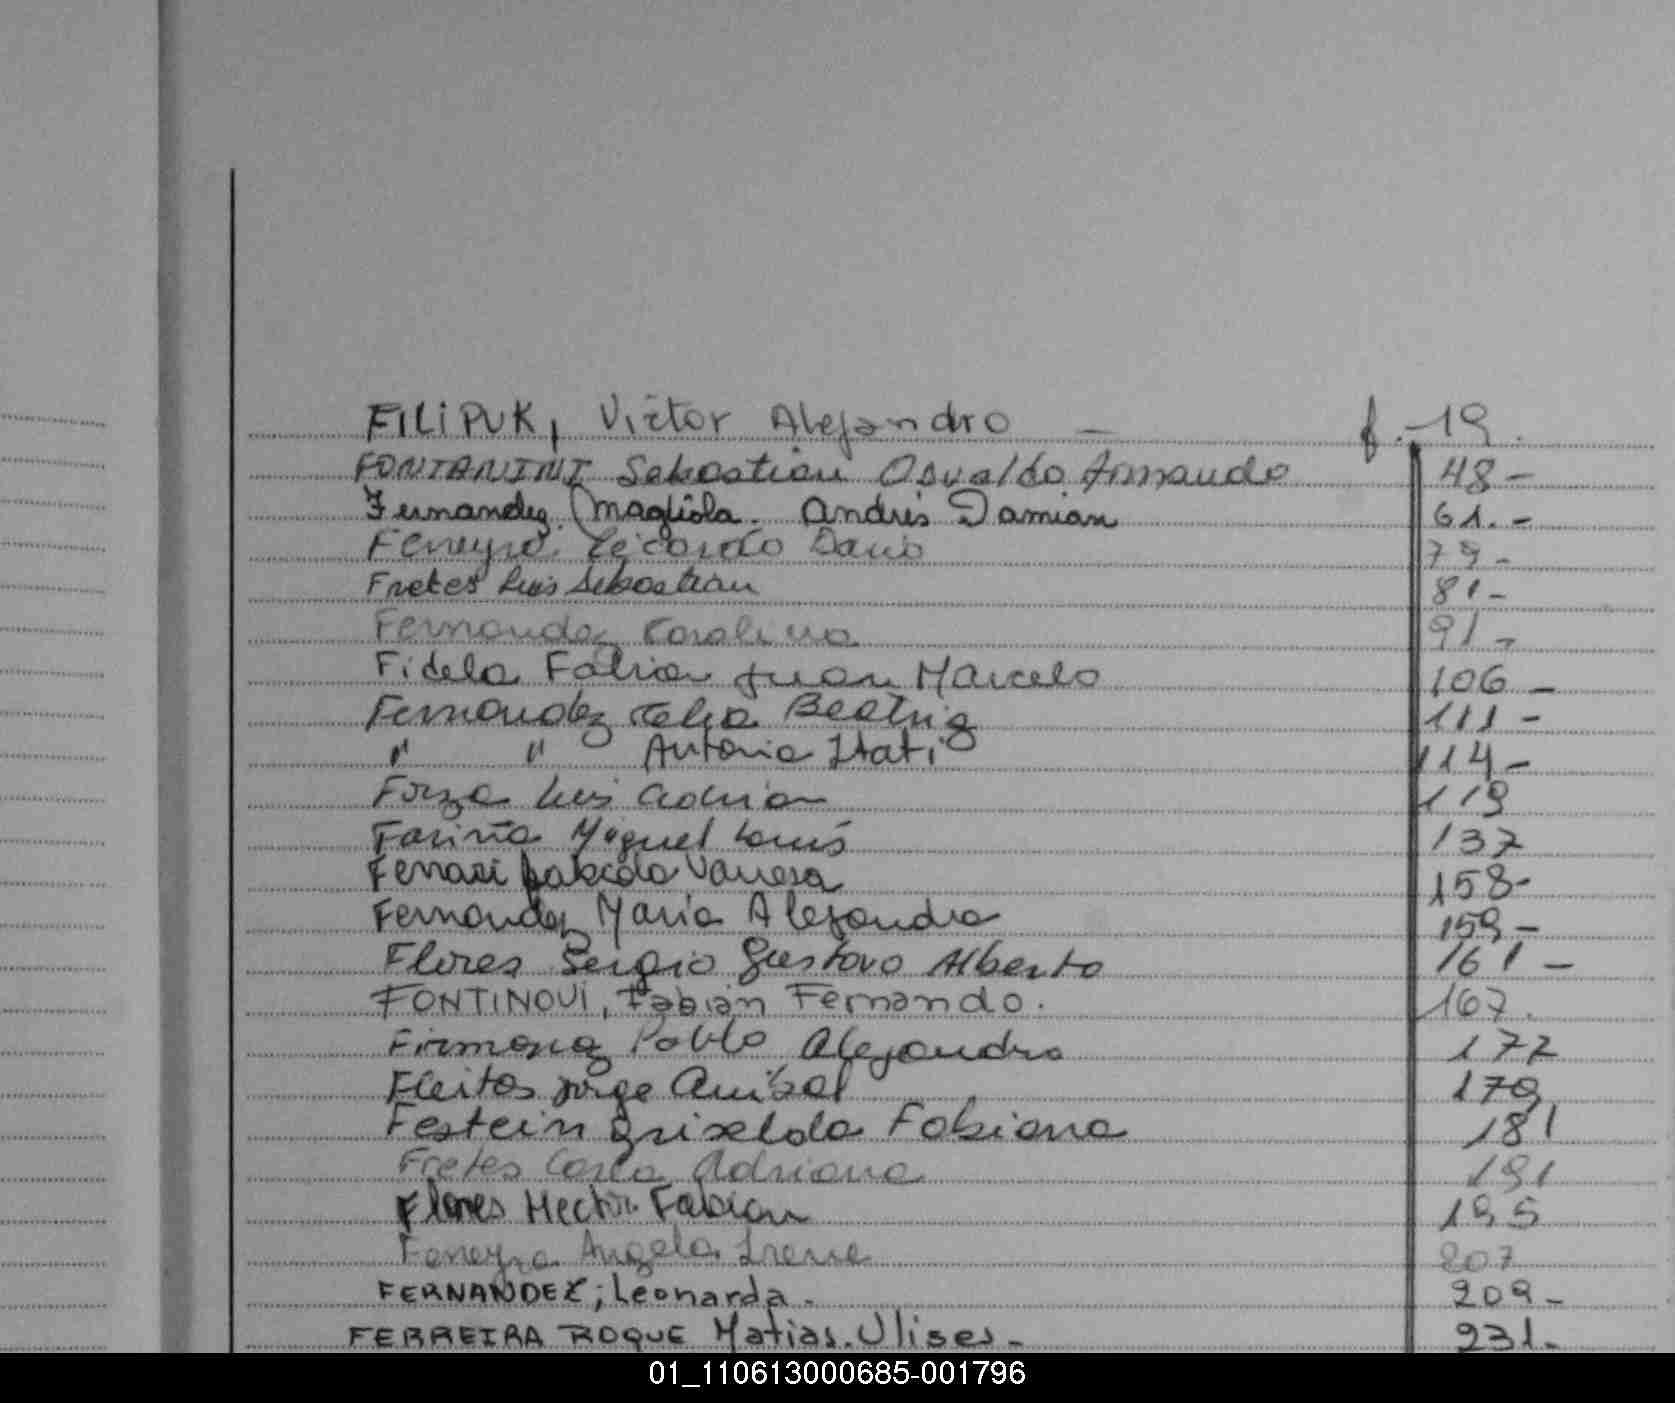 FILIPUK, Victor Alejandro — f. 19.
FONTANINI Sebastian Osvaldo Armando 48-
Fernandez. Magliola. Andrés Damian 61.-
Ferreyra Ricardo Dario 79-
Fretes Luis Sebastian 81-
Fernandez Carolina 91-
Fidela Fabian Juan Marcelo 106-
Fernandez Celia Beatriz 111-
" " Antonia Itati 114-
Forza Luis Adrian 119
Fariña Miguel Louis 137
Ferrari Vanesa 158-
Fernandez Maria Alejandra 159-
Flores Sergio Gustavo Alberto 161-
FONTINOVI, Fabián Fernando. 167.
Pablo Alejandro 177
Fleitas Jorge Anibal 179
Festein Griselda Fabiana 181
Fretes Carla Adriana 191
Flores Hector Fabian 195
Ferreyra Angela Irene 207
FERNANDEZ; Leonarda. 209-
FERREIRA ROQUE Matias.Ulises- 231-
01_110613000685-001796